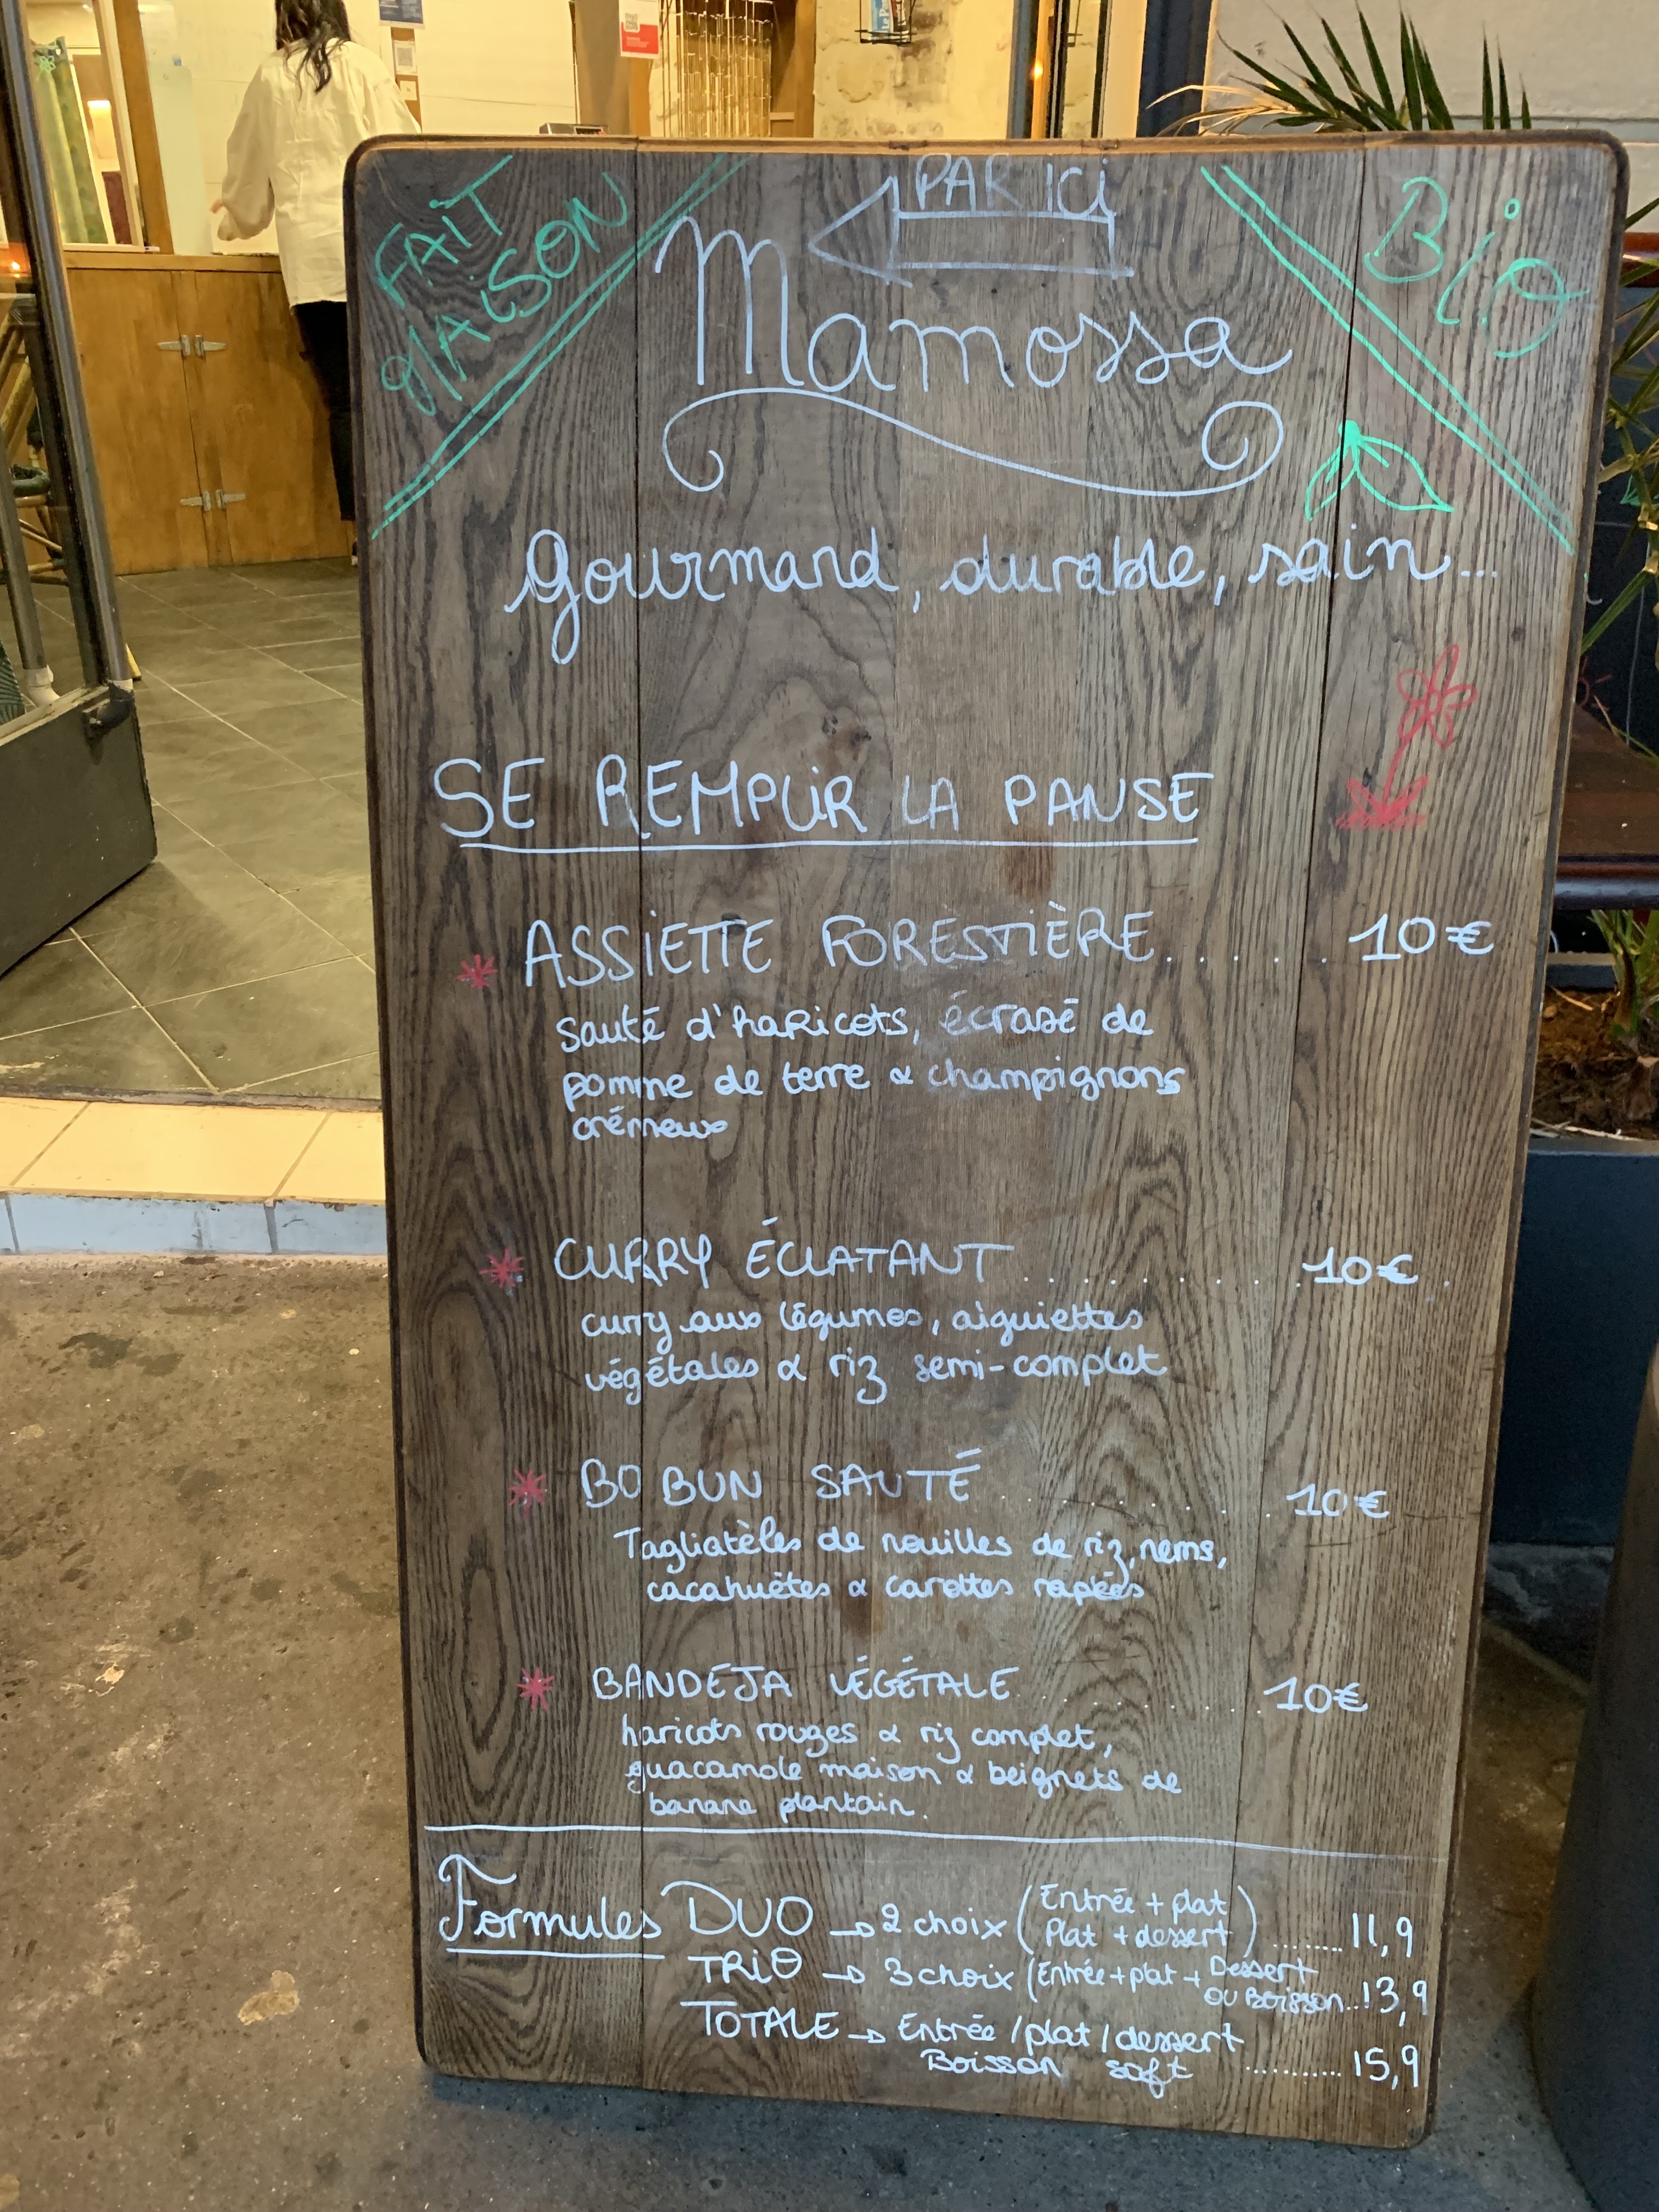 PAR ICI
FAIT
MAISON
BIO
Mamossa
Gourmand, durable, sain...
SE REMPLIR LA PANSE
ASSIETTE FORESTIÈRE...... 10€
sauté d'haricots, écrasé de
pomme de terre & champignons
crémeux
CURRY ÉCLATANT .......... 10€ .
curry aux légumes, aiguiettes
végétales & riz semi-complet
BO BUN SAUTÉ .......... 10€
Tagliatèles de nouilles de riz, nems,
cacahuètes & carottes rapées
BANDEJA VÉGÉTALE .......... 10€
haricots rouges & riz complet,
guacamole maison & beignets de
banane plantain.
Formules DUO → 2 choix (Entrée + plat
Plat + dessert) ......... 11,9
TRIO → 3 choix (Entrée + plat + Dessert
OU Boisson...13,9
TOTALE → Entrée / plat / dessert
Boisson soft .......... 15,9